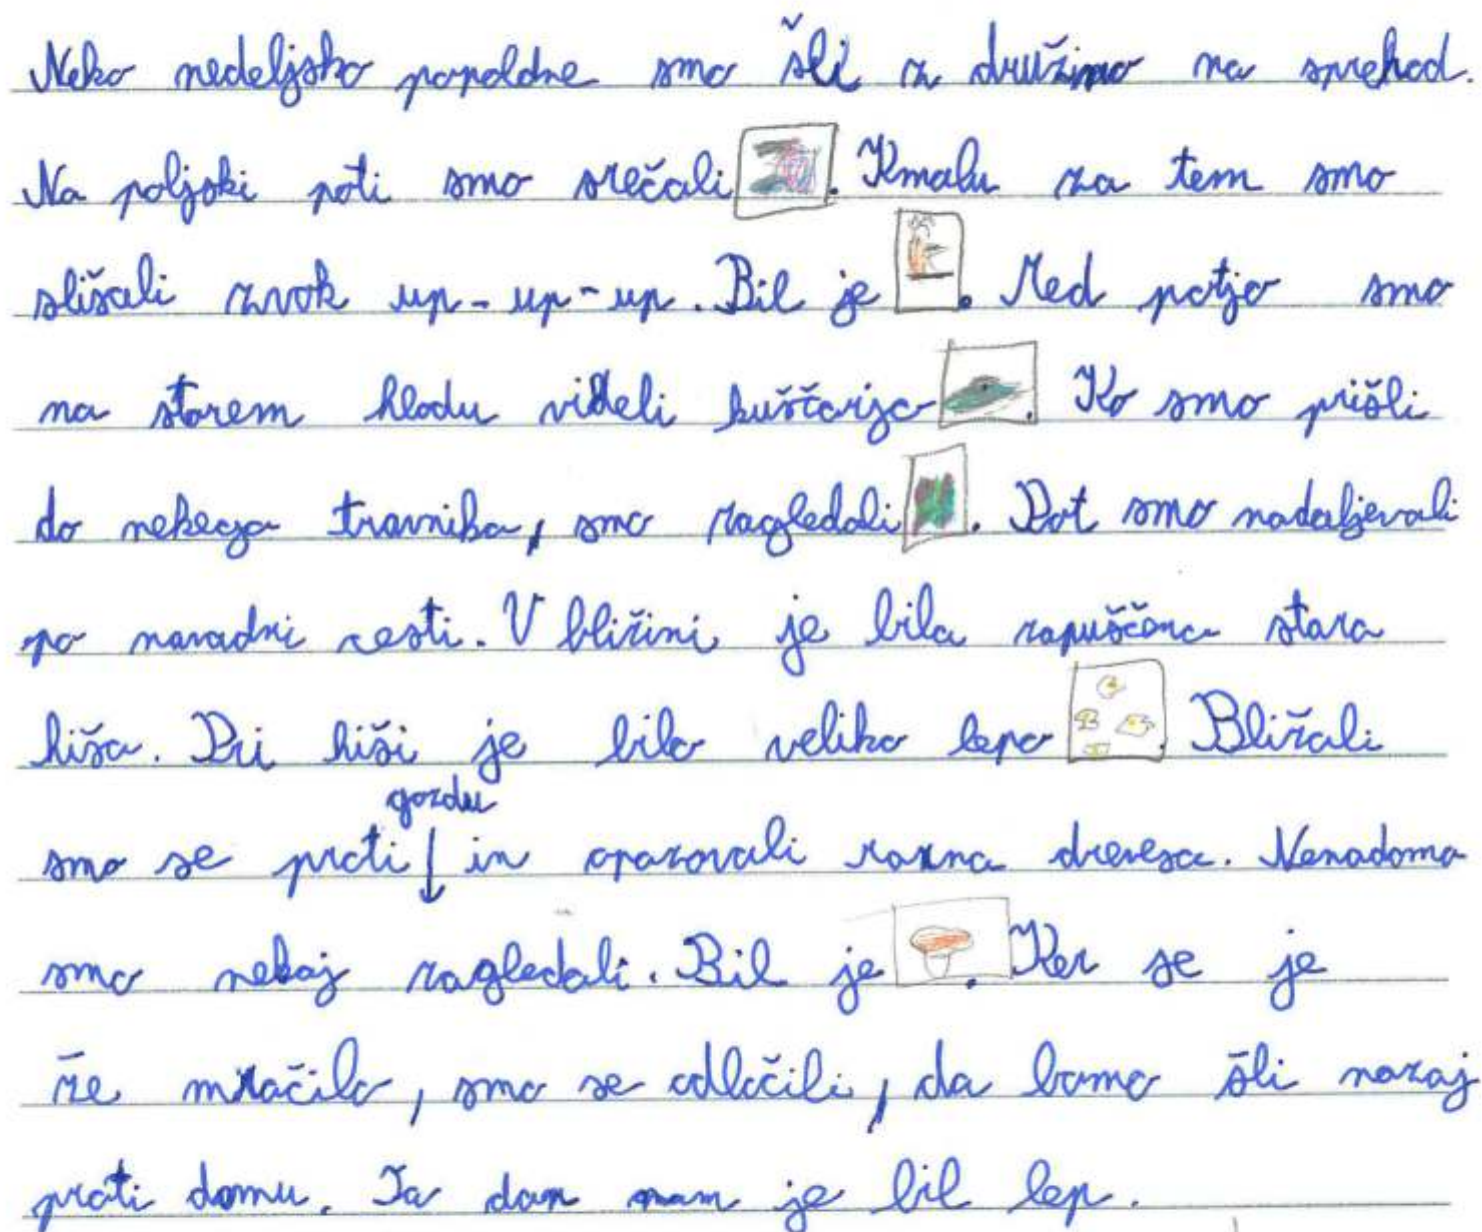 Neko nedeljsko popoldne smo šli z družino na sprehod.
Na poljski poti smo srečali . Kmalu za tem smo
slišali zvok up-up-up. Bil je . Med potjo smo
na starem hlodu videli kuščarja . Ko smo prišli
do nekega travnika, smo zagledali . Pot smo nadaljevali
po navadni cesti. V bližini je bila zapuščena stara
hiša. Pri hiši je bilo veliko lepo . Bližali
gozdu
smo se proti ↓ in opazovali razna drevesa. Nenadoma
smo nekaj zagledali. Bil je . Ker se je
že mračilo, smo se odločili, da bomo šli nazaj
proti domu. Ta dan nam je bil lep.